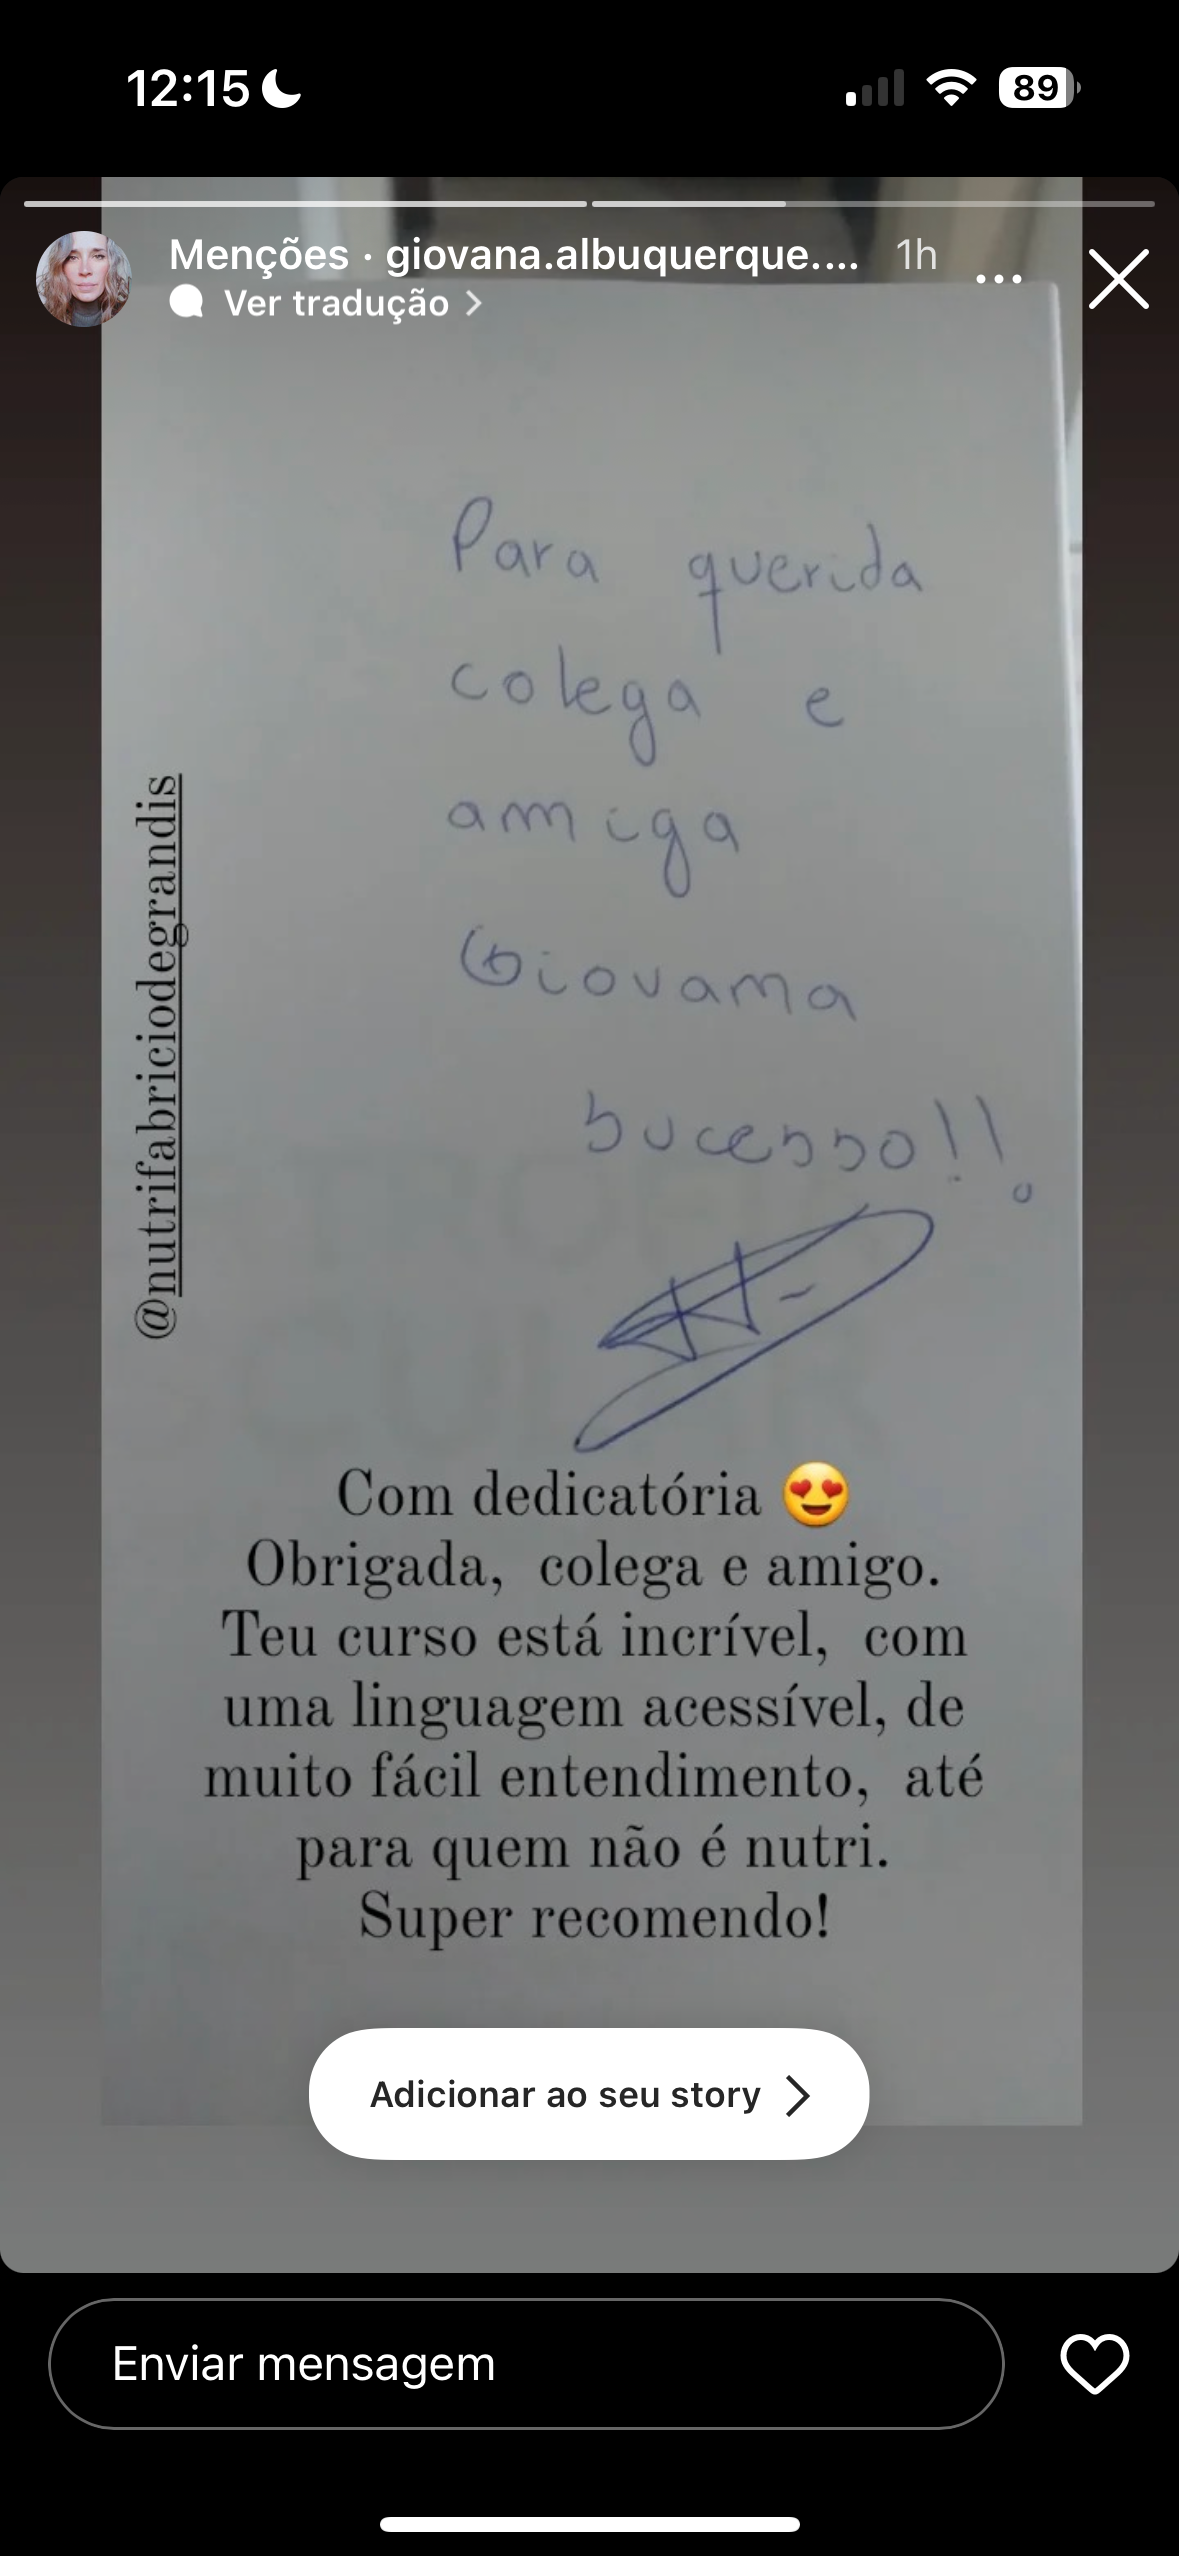 12:15
89
Menções · giovana.albuquerque.... 1h
Ver tradução
Para querida
colega e
amiga
Giovana
Sucesso!!
@nutrifabriciodegrandis
Com dedicatória 😍
Obrigada, colega e amigo.
Teu curso está incrível, com
uma linguagem acessível, de
muito fácil entendimento, até
para quem não é nutri.
Super recomendo!
Adicionar ao seu story
Enviar mensagem